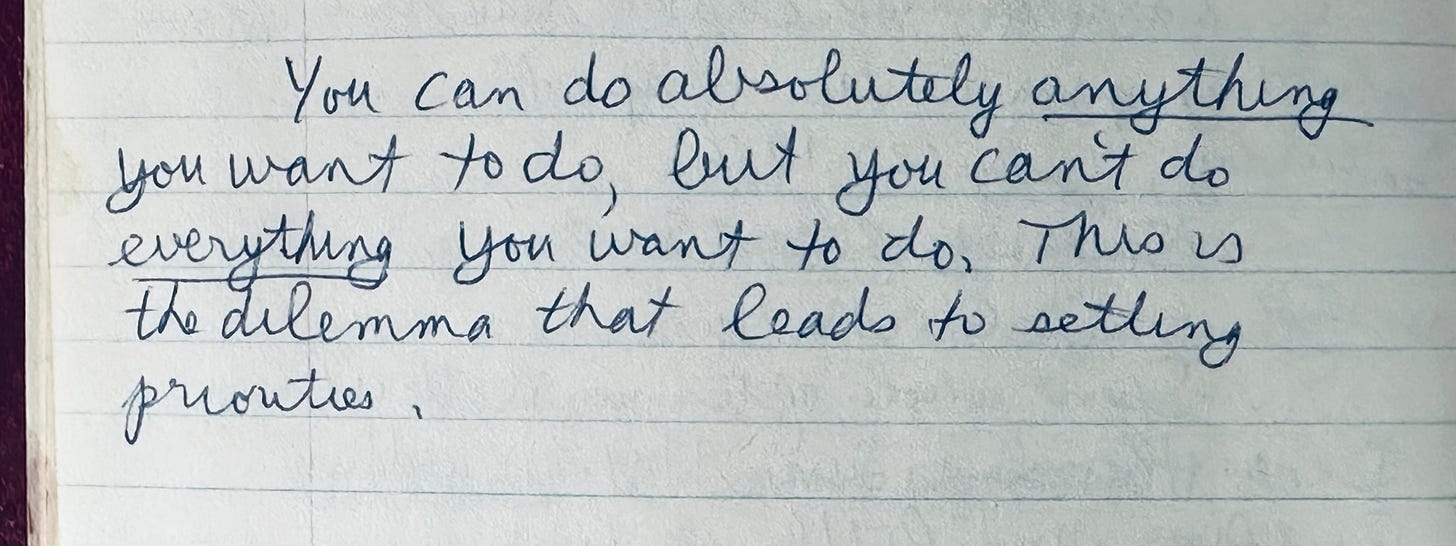 You can do absolutely anything
you want to do, but you can't do
everything you want to do. This is
the dilemma that leads to setting
priorities.